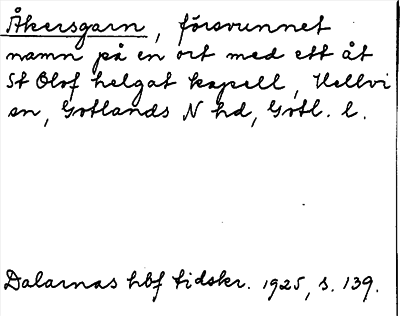 Åkersgarn, försvunnet
namn på en ort med ett åt
St Olof helgat kapell, Hellvi
sn, Gotlands N hd, Gotl. l.
Dalarnas hbf tidskr. 1925, s. 139.